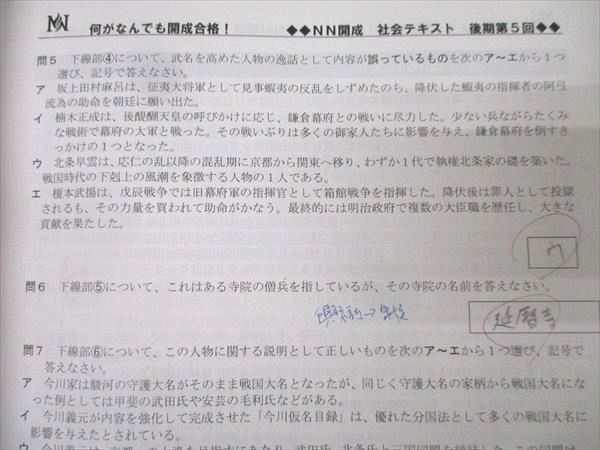 何がなんでも開成合格！　◆◆NN開成　社会テキスト　後期第５回◆◆
問５　下線部④について、武名を高めた人物の逸話として内容が誤っているものを次のア～エから１つ
選び、記号で答えなさい。
ア　坂上田村麻呂は、征夷大将軍として見事蝦夷の反乱をしずめたのち、降伏した蝦夷の指揮者の阿弖
流為の助命を朝廷に願い出た。
イ　楠木正成は、後醍醐天皇の呼びかけに応じ、鎌倉幕府との戦いに尽力した。少ない兵ながらたくみ
な戦術で幕府の大軍と戦った。その戦いぶりは多くの御家人たちに影響を与え、鎌倉幕府を倒すき
っかけの１つとなった。
ウ　北条早雲は、応仁の乱以降の混乱期に京都から関東へ移り、わずか１代で執権北条家の礎を築いた。
戦国時代の下剋上の風潮を象徴する人物の１人である。
エ　榎本武揚は、戊辰戦争では旧幕府軍の指揮官として箱館戦争を指揮した。降伏後は罪人として投獄
されるも、その力量を買われて助命がかなう。最終的には明治政府で複数の大臣職を歴任し、大きな
貢献を果たした。
ウ
問６　下線部⑤について、これはある寺院の僧兵を指しているが、その寺院の名前を答えなさい。
延暦寺
問７　下線部⑥について、この人物に関する説明として正しいものを次のア～エから１つ選び、記号で
答えなさい。
ア　今川家は駿河の守護大名がそのまま戦国大名となったが、同じく守護大名の家柄から戦国大名にな
った例としては甲斐の武田氏や安芸の毛利氏などがある。
イ　今川義元が内容を強化して完成させた「今川仮名目録」は、優れた分国法として多くの戦国大名に
影響を与えたとされている。